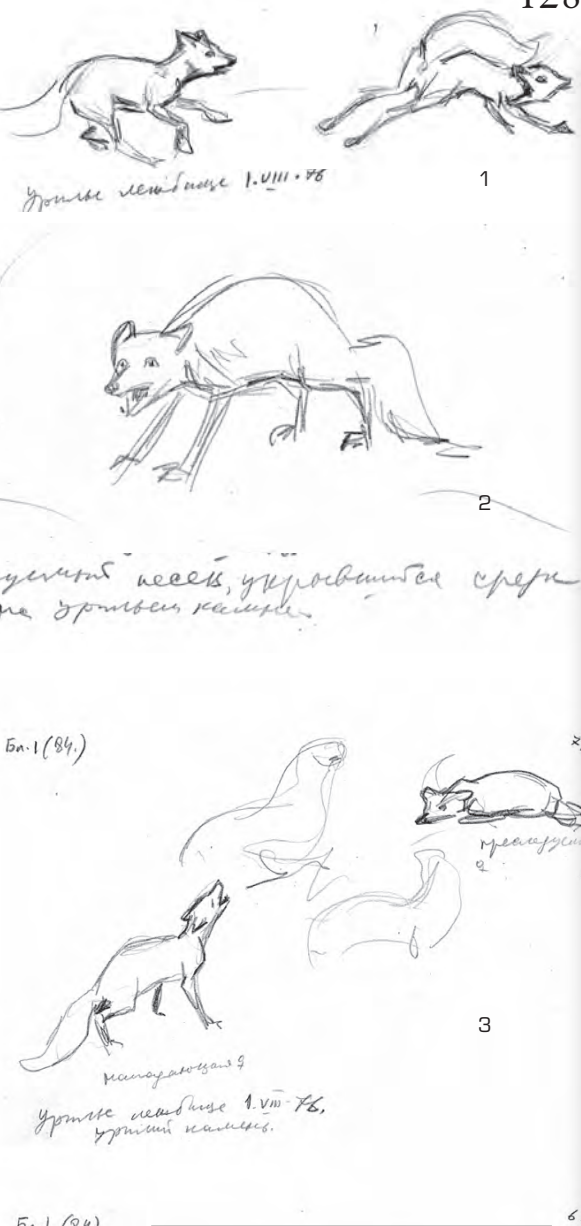 128
Урилье лежбище 1.VIII.76
1
2
песец, укрывшийся среди
на урильем камне.
Бл.1 (84.)
преследуем
♀
нападающая ♀
3
Урилье лежбище 1.VIII-76,
урилий камень.
Бл.1 (84)
6